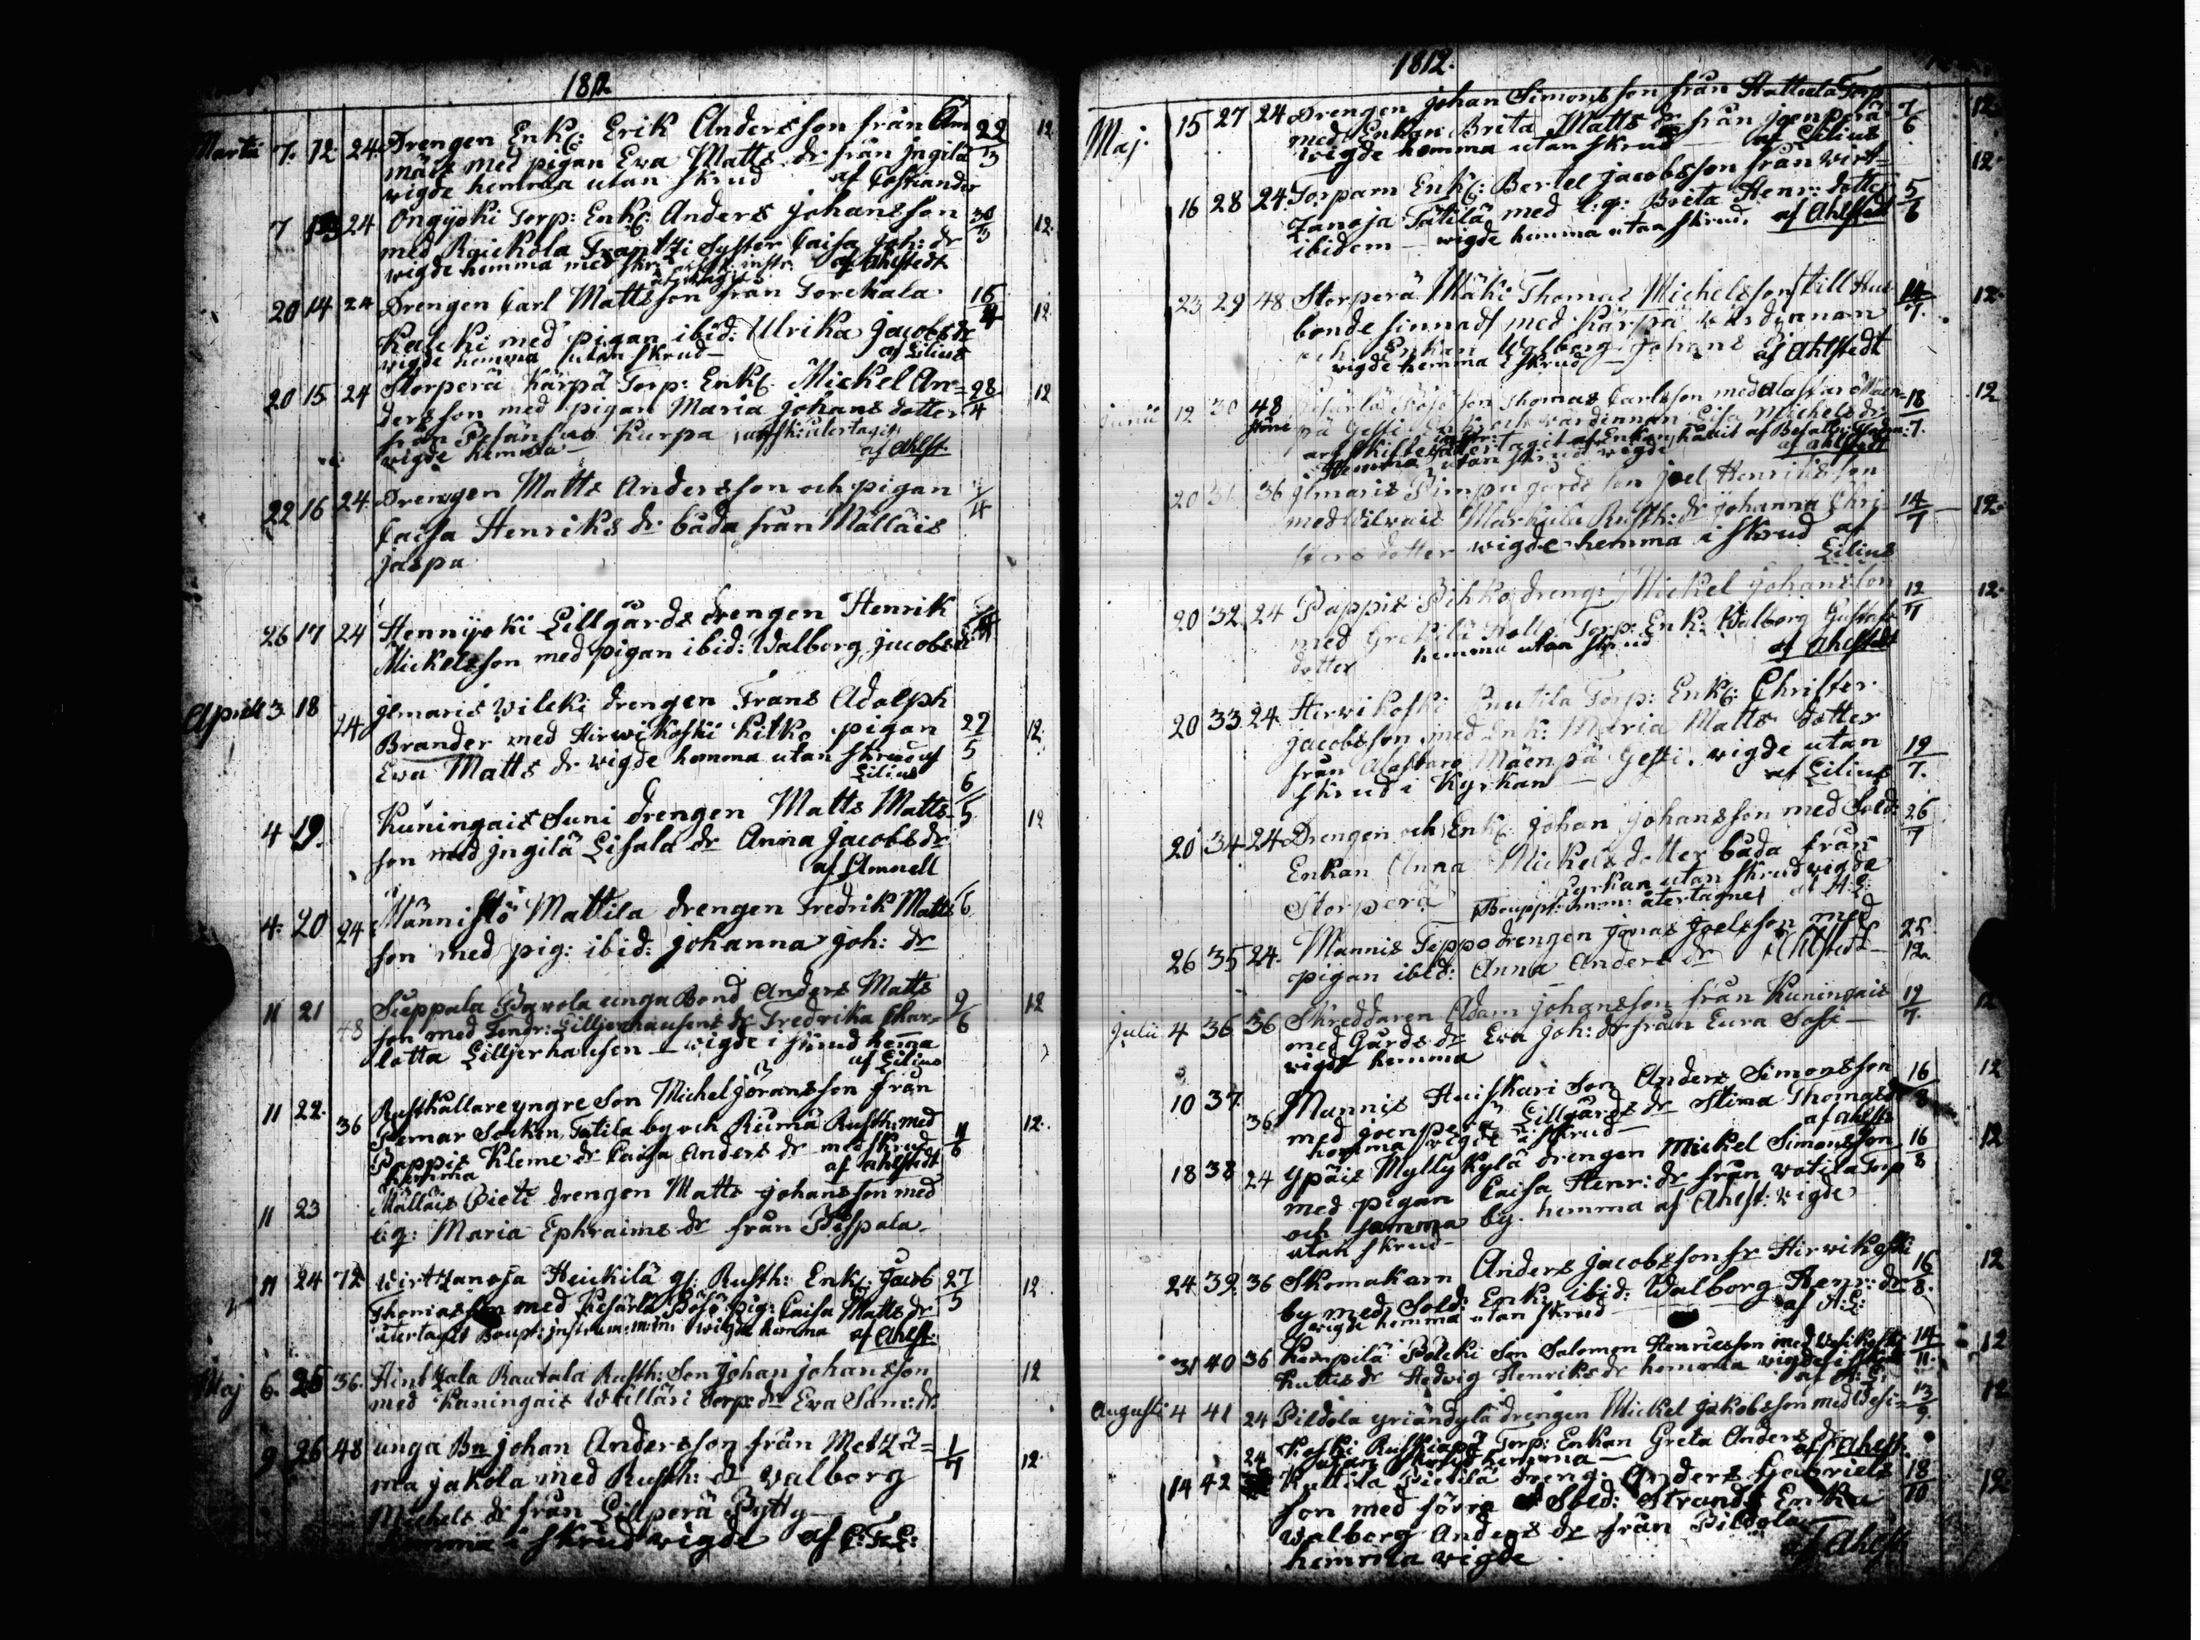 1812.
Martii 7. 12. 24. Drengen Enkl: Erik Andersson från Am 22/3 12
mäis med pigan Eva Matts dr från Ingilä
wigde hemma utan skrud af Costiander
7 13 24 Ongyoki Torp: Enkl: Anders Johansson 30/3 12.
med Raickola Frantzi Syster Caisa Joh: dr
wigde hemma med af Ahlstedt
20 14 24 Drengen Carl Mattsson från Torckala 16/4 12.
Kalcki med pigan ibid: Ulrika Jacobs dr
wigde hemma utan skrud af Lilius
20 15 24 Storperä Kärpä Torp: Enkl. Mickel An- 28/4 12
dersson med pigan Maria Johans dotter
från Kurpa
wigde hemma af Ahlst.
22 16 24 Drengen Matts Andersson och pigan /4
Caisa Henriks dr båda från Mälläis
Jaspa
26 17 24 Hennijoki Lillgårds drengen Henrik
Mickelsson med pigan ibid: Walborg Jacobs dr
Aprill 3 18 24 Ilmaris Wilcki drengen Frans Adolph
Brander med Hirwikoski Kitko pigan 22/5 12
Eva Matts dr wigde hemma utan skrud af
Lilius
4 19. Kuningais Suni drengen Matts Matts- 6/5 12
son med Ingilä Lisala dr Anna Jacobs dr
af Amnell
4. 20 24 Männistö Mattila drengen Fredrik Matts 6
son med pig: ibid: Johanna Joh: dr
11 21 48 Sieppala Pavola unga Bond Anders Matts 9/6 12
son med Lendr: Lilljerhausens dr Fredrika Char-
lotta Lilljerhausen wigde i skrud hema
af Lilius
11 22. 36 Rusthållare yngre Son Michel Göransson från
Pemar Socken, Tatila by och Reimä Rusth: med /6 12.
Pappis Kleme dr Caisa Anders dr med skrud
hemma af Ahlstedt
11 23 Mälläis Pieti drengen Matts Johansson med
l: q: Maria Ephraims dr från Pispala
11 24 72 Wirtzanoja Heickilä gl: Rusth: Enkl: Jacob 27/5 12
Thomasson med Kesärlä Böjö pig: Caisa Matts dr
återtagit Boupt: instrum: m: m: wigde hemma af Ahlst:
Maj 6. 25 36. Hintzala Rautala Rusth: Son Johan Johansson 12
med Kuningais Wälläri Torp: dr Eva Sam: dr
9 26 48 unga Bn Johan Andersson från Metzä- 1/7 12.
ma Jakola med Rusth: dr Walborg
Michels dr från Lillperä Pytty
hemma i skrud wigde af C: F: L:
1812.
Maj. 15 27 24 Drengen Johan Simonsson från Hattula Torp 7/6 12
med Enkan Brita Matts dr från Joenperä
wigde hemma utan skrud af Lilius
16 28 24. Torparn Enkl: Bertel Jacobsson från Wirt- 5/6 12
zanoja Tätilä med l: q: Brita Henr: dotter
ibidem wigde hemma utan skrud. af Ahlstedt
23 29 48 Storperä Mäki Thomas Michelsson till Hus 14/7. 12.
bonde sinnadt med Kärpä wärdinnan
och Enkan Walborg Johans dr
wigde hemma i skrud af Ahlstedt
Junii 12 30 48 son Thomas Carlsson med 18/7. 12
wärdinnan Lisa Michels dr
hemma utan skrud wigde af Ahlstedt
20 31 36 Ilmaris Pimpu gårds son Joel Henricsson
med Markula Rusth: dr Johanna Chri- 14/7 12.
sters dotter wigde hemma i skrud af
Lilius
20 32 24 Pappis Pihko dreng: Mickel Johansson 12/7 12.
med Torp: Enk: Walborg Gustafs
dotter hemma utan skrud af Ahlstedt
20 33 24. Hirwikoski Knutila Torp: Enkl: Christer
Jacobsson med Enk: Maria Matts dotter
från Mäenpä Gesti. wigde utan 19/7.
skrud i Kyrkan af Lilius
20 34 24 Drengen och Enkl: Johan Johansson med Sold: 26/7
Enkan Anna Mickels dotter båda från
Storperä i Kyrkan utan skrud wigde
Boupt: m: m: återtagne af A: L:
26 35 24. Mannis Teppo drengen Jonas Joelsson med 25/12
pigan ibid: Anna Anders dr Ahlstedt
Julii 4 36 36 Skreddaren Adam Johansson från Kuningais 19/7. 12
med Gårds dr Eva Joh: dr från Eura Sosi
wigde hemma
10 37. 36 Mannis Huiskari Son Anders Simonsson 16/8 12
med Joenperä Lillgårds dr Stina Thomas dr
hemma wigde i skrud af Ahlst
18 38 24 Ypäis Myllykylä drengen Mickel Simonsson 16/8 12
med pigan Caisa Henr: dr från Wotila Torp
och samma by. hemma af Ahlst: wigde
utan skrud
24 39. 36 Skomakarn Anders Jacobsson fr Hirwikoski 16/8. 12
by med Sold: Enk: ibid: Walborg Henr: dr
wigde hemma utan skrud af A: L:
31 40 36 Kämpilä Pålcki Son Salomon Henricsson med Wesikoski 14/11. 12
Kuttis dr Hedwig Henriks dr hemma wigde i skrud
af A: L:
Augusti 4 41 24 Pildola Yriändylä drengen Mickel Jakobsson med Wesi- 13/9. 12
koski Ruskiapä Torp: Enkan Greta Anders dr
utan skrud hemma af Ahlst.
14 42 24 Kuttila Pietilä dreng: Anders Gabriels 18/10 12
son med förre Sold: Strands Enka
Walborg Anders dr från Pildola
hemma wigde af Ahlst